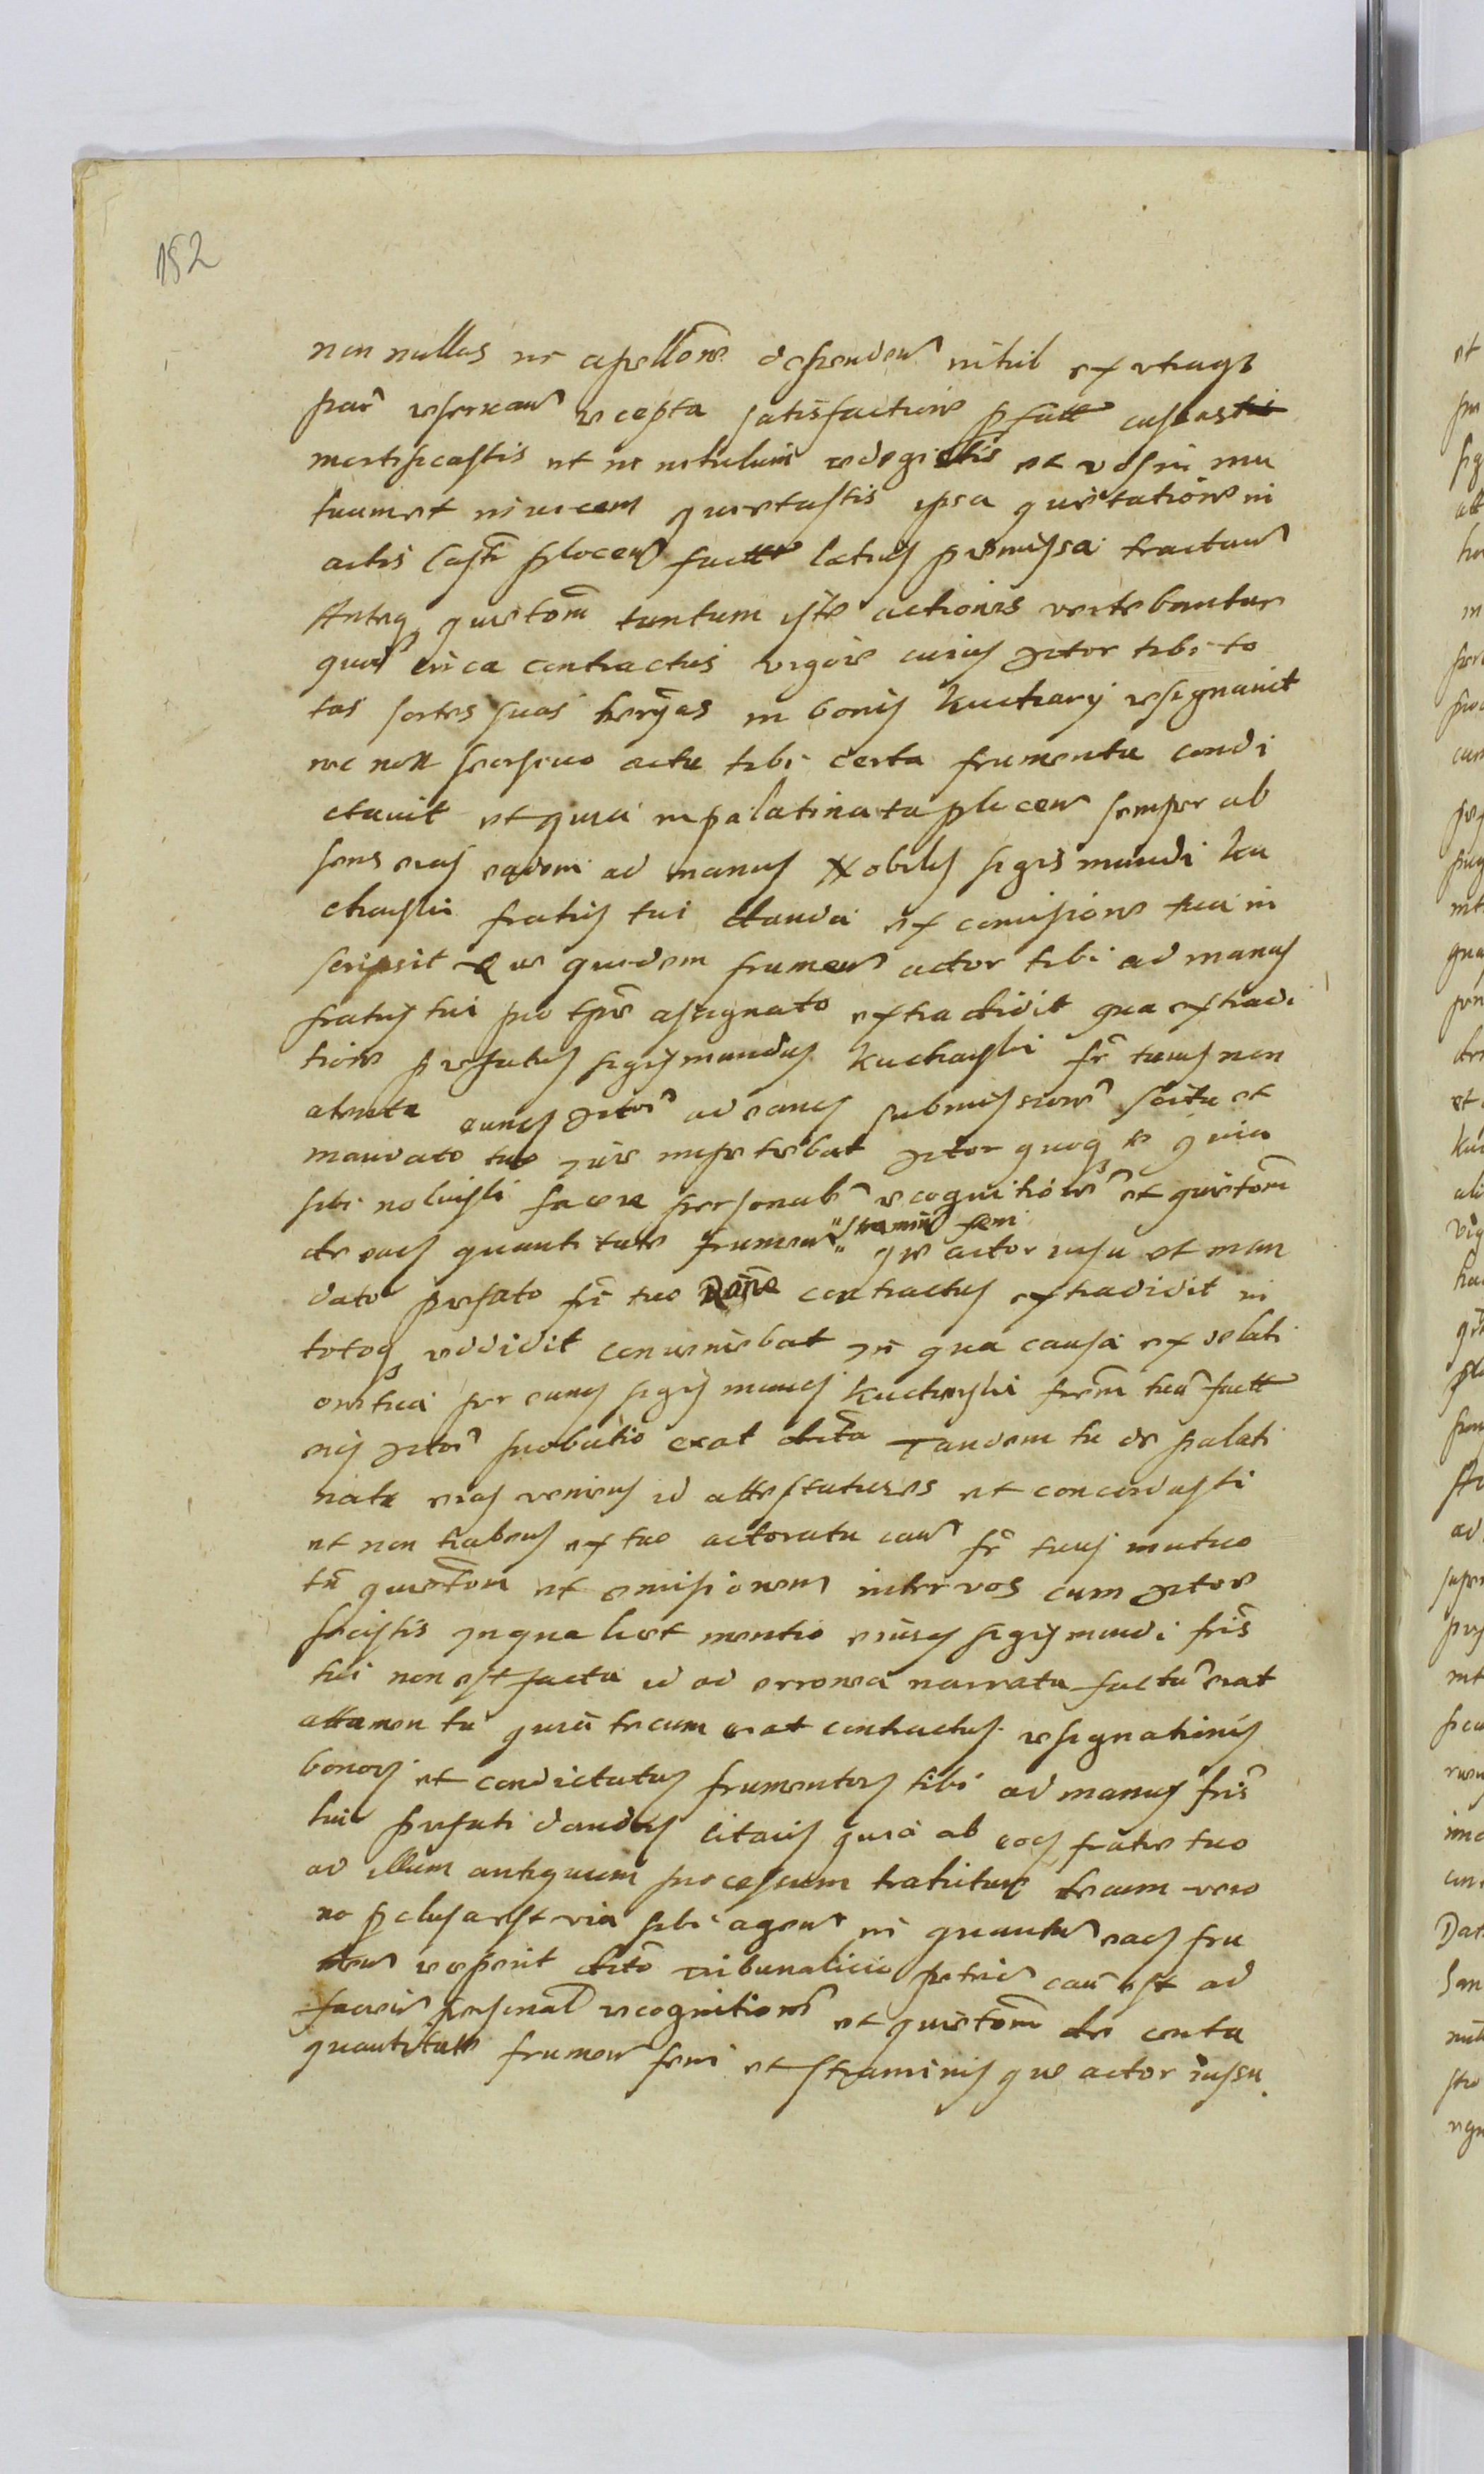 152
non nullas in apellone dependen nihil ex utraq3
par reservan recepta satisfactione p fatt cassastis
mortificastis et in nihilum redegistis et vos in mu
tuum et invicem quietastis ipsa quietatione in
actis Castr plocen fact latius premissa tractan
Anteq quietom tantum iste actiones vertebantur
quod circa contractus vigore cuius actor tibi to
tas sortes suas herijas in bonis Kuchary resignavit
nec non seorsivo actu tibi certa frumenta condi
ctavit et quia in palatinata plocen semper ab
sens eras eadem ad manus Nobilis Sigismundi Ku
charski fratris tui danda ex comissione tua in
scripsit Que quidem frumen actor tibi ad manus
fratris tui pro tpre assignato extradidit qua extradi
tione prefatus Sigismundus Kucharski fr tuus non
atenta actor ad submissione scitu et
mandato tuo iure impetebat actor quoq te quia
sibi noluisti facere personale recognitione et quietom
de quantitate frumen stramin feni que actor iussu et man
dato prefato fri tuo contractus extradidit in
totoq reddidit conveniebat In qua causa ex delati
one tua per Sigismun Kucharski frem tuu fact
actor probatio erat dicta Tandem tu de palati
natu eras veniens id attestatures et concordasti
et non habens ex tuo actoratu cau fr tuus mutuo
tu quietom et omissionem inter vos cum actore
fecistis In qua licet mentio eiusd Sigismundi fris
tui non est facta id ad erronea narrata factu erat
attamen tu quia tecum erat contractus resignationis
bonor et condictatus frumentor tibi ad manus fris
tui prefati dandor citaris quia ab eod fratre tuo
ad illum antiquum processum trahitur tecum vero
no p clusa est via sibi agen in quantu fru
men recepit dicto Tribunalicio petric cau est ad
faciend personal recognitione et quietom de certa
quantitate frumen feni et straminis que actor iussu